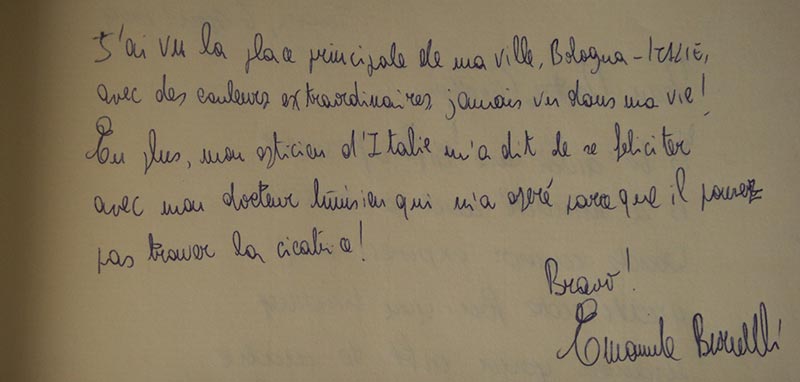 J'ai vu la place principale de ma ville, Bologna - ITALIE,
avec des couleurs extraordinaires, jamais vu dans ma vie!
En plus, mon opticien d'Italie m'a dit de se feliciter
avec mon docteur tunisien qui m'a operé parce que il pouvez
pas trouver la cicatrice!
Bravò!
Emanuele